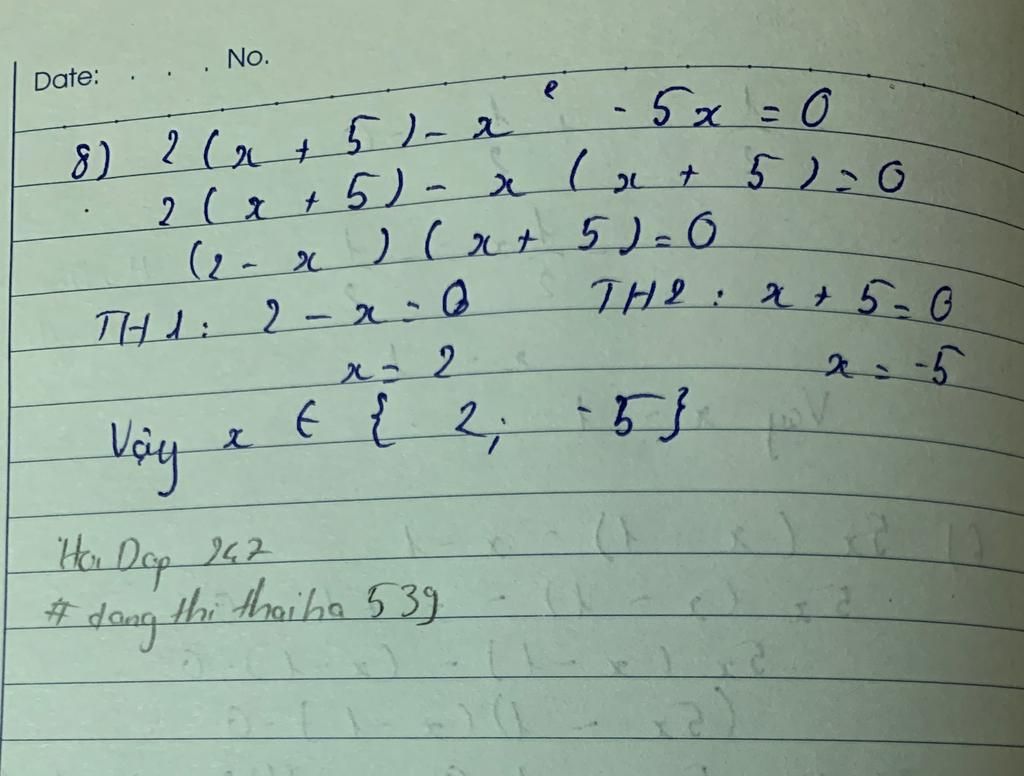 Date: . . . No.
8) 2(x + 5) - x² - 5x = 0
2(x + 5) - x(x + 5) = 0
(2 - x)(x + 5) = 0
TH1: 2 - x = 0 TH2: x + 5 = 0
x = 2 x = -5
Vậy x ∈ {2; -5}
Hoi Dap 247
# dang thi thaiha 539